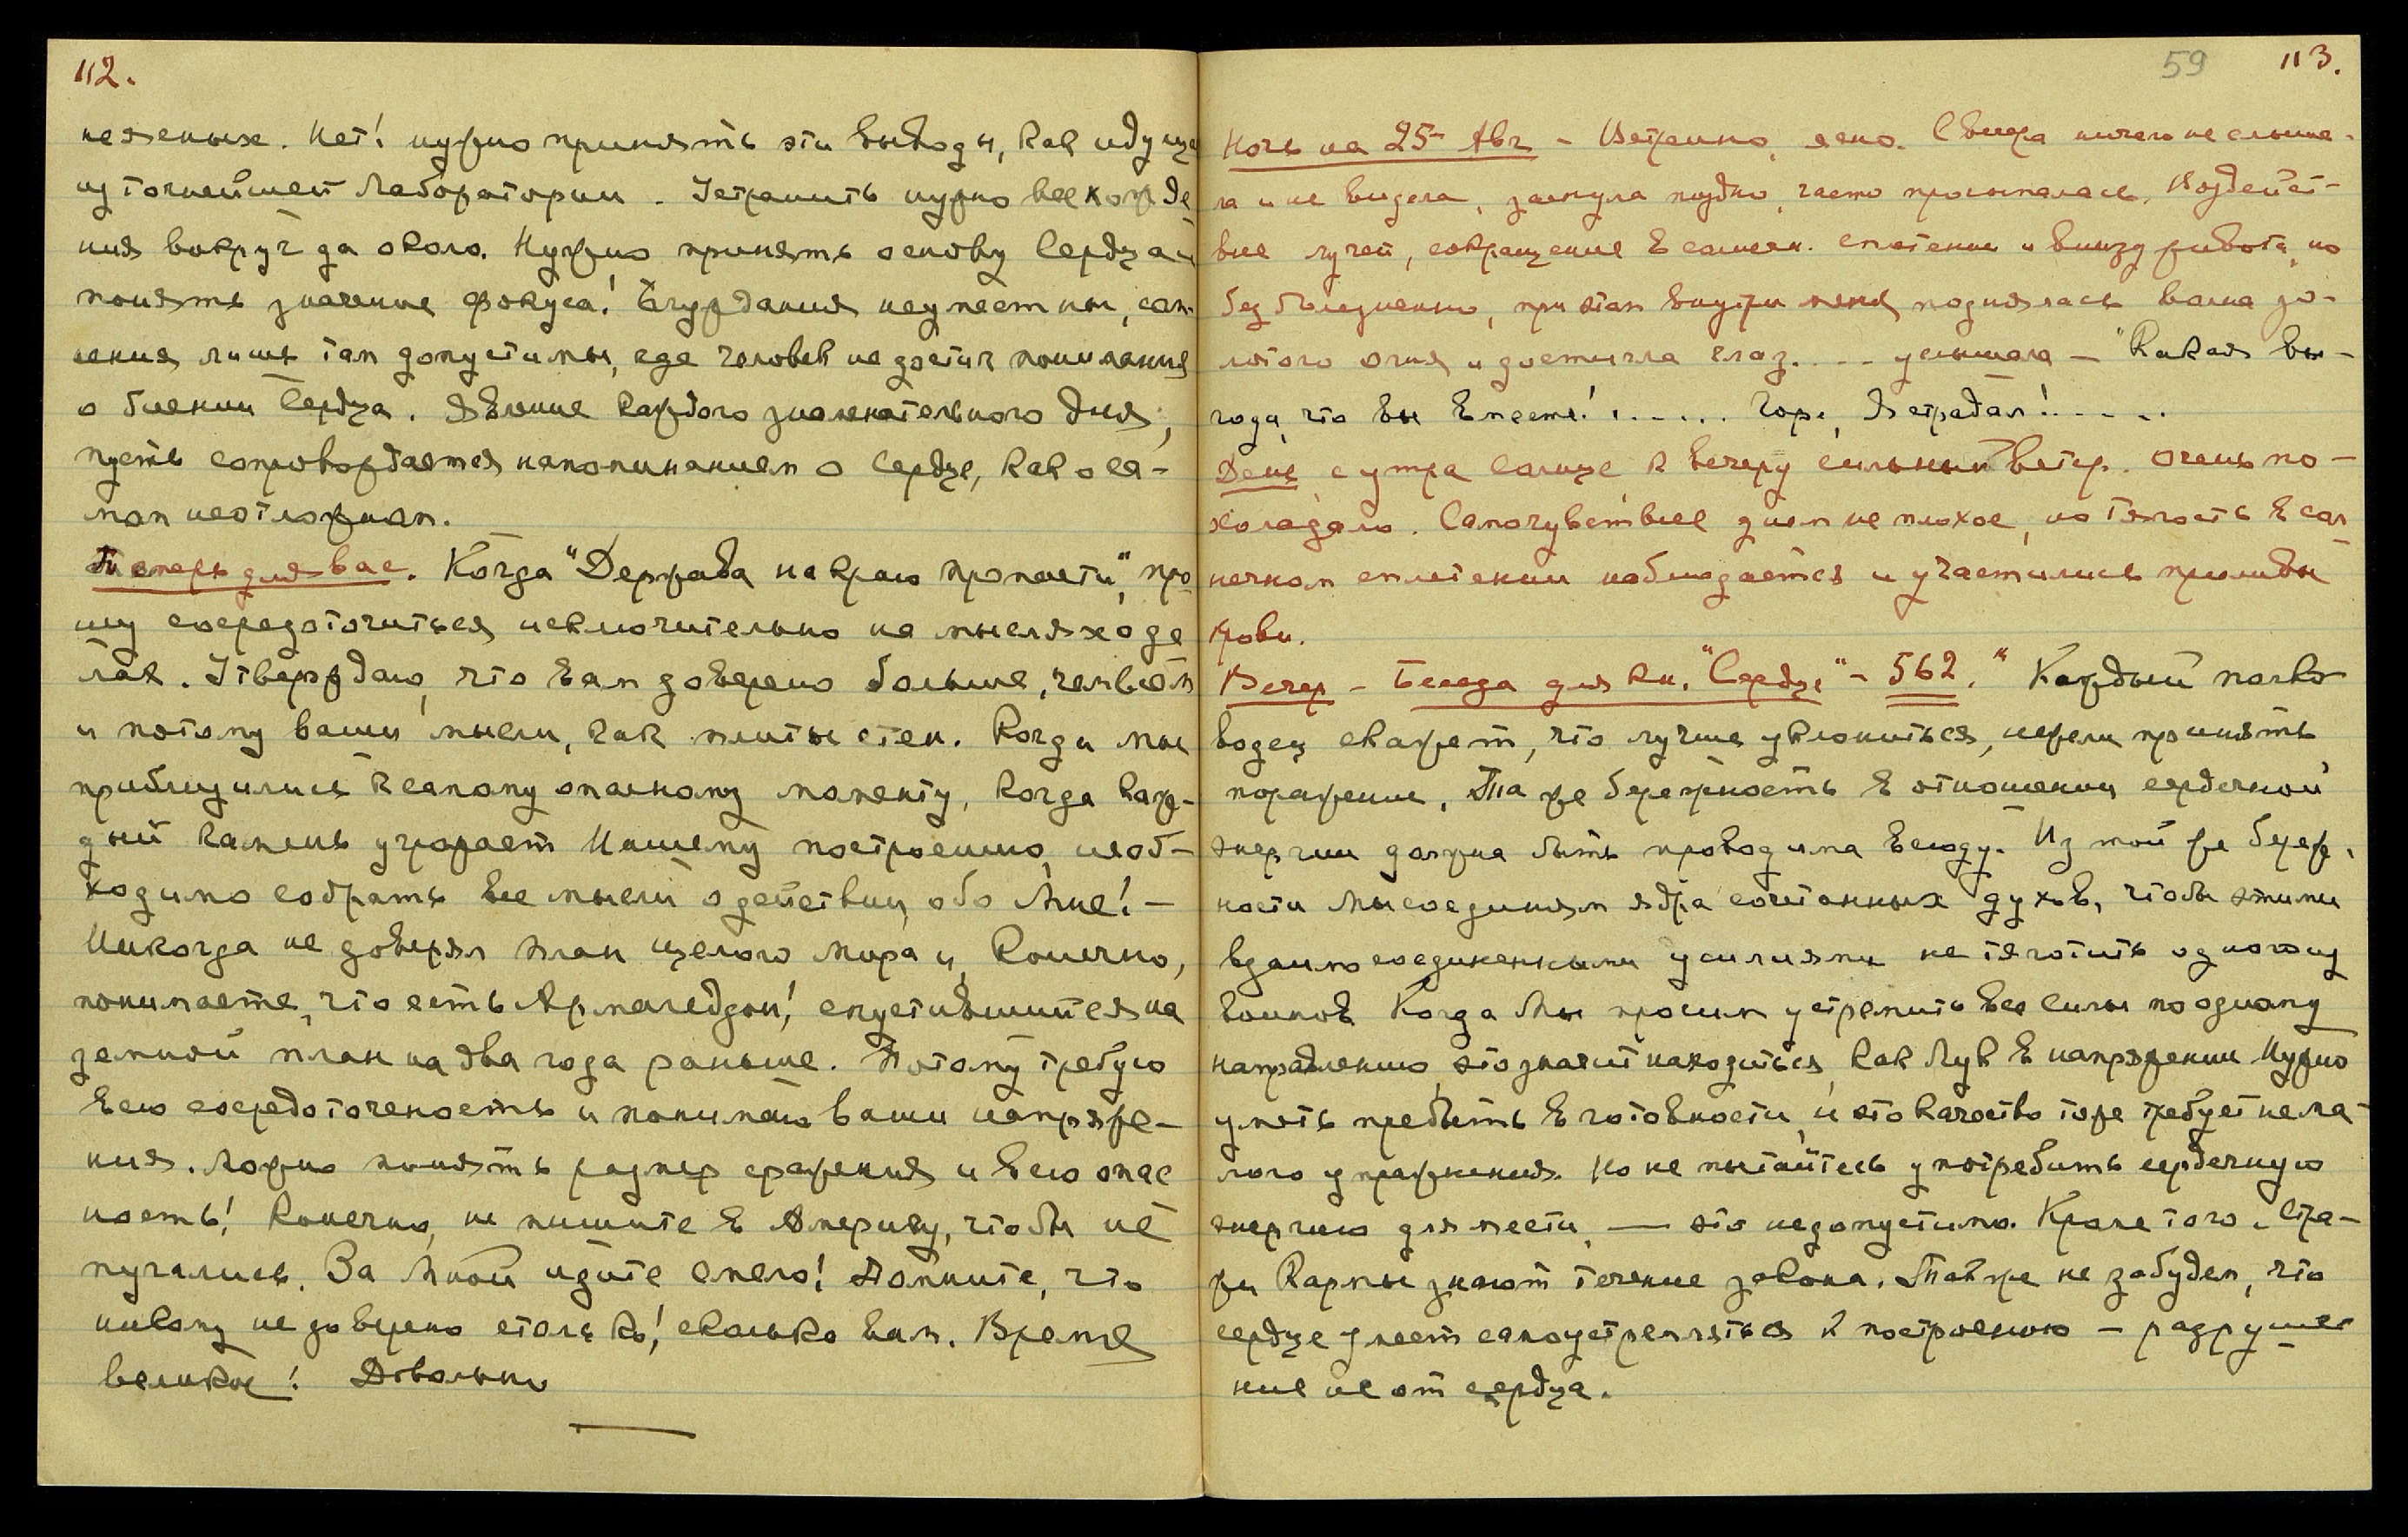 112.
неясных. Нет! нужно принять эти выводы, как идущие
из точнейшей Лаборатории. Устранить нужно все хожде-
ния вокруг да около. Нужно принять основу Сердца и
понять значение фокуса! Блуждания неуместны, сом-
нения лишь там допустимы, где человек не достиг понимания
о биении Сердца. Явление каждого знаменательного дня,
пусть сопровождается напоминанием о Сердце, как о са-
мом неотложном.
Теперь для вас. Когда "Держава на краю пропасти", про-
шу сосредоточиться исключительно на мыслях о де
лах. Утверждаю, что вам доверено больше, чем всем
и потому ваши мысли, как плиты стен. Когда мы
приблизились к самому опасному моменту, когда каж-
дый камень угрожает Нашему построению, необ-
ходимо собрать все мысли о действии, обо Мне! —
Никогда не доверял план целого мира и, конечно,
понимаете, что есть Армагеддон! спустившийся на
земной план на два года раньше. Потому требую
всю сосредоточенность и понимаю ваши напряже-
ния. Можно понять размер сражения и всю опас
ность! Конечно, не пишите в Америку, чтобы не
пугались. За Мной идите смело! Помните, что
никому не доверено столько! сколько вам. Время
великое! Довольно
59 113.
Ночь на 25 Авг - Ветрено, ясно. С вечера ничего не слыша-
ла и не видела, заснула поздно, часто просыпалась. Воздейст-
вие лучей, сокращение в солнечн. сплетении и внизу живота, но
безболезненно, при этом внутри меня поднялась волна зо-
лотого огня и достигла глаз.... услышала — "Какая вы-
года, что вы вместе! ...... Гор., Я страдал!.....
День с утра солнце к вечеру сильный ветер. Очень по-
холодало. Самочувствие днем не плохое, но тягость в сол
нечном сплетении наблюдается и участились приливы
крови.
Вечер - Беседа для кн. "Сердце" - 562. " Каждый полко
водец скажет, что лучше уклониться, нежели принять
поражение. Та же бережность в отношении сердечной
энергии должна быть проводима всюду. Из той же береж.
ности Мы соединяем ядра сочетанных духов, чтобы этими
взаимо соединенными усилиями не тяготить одного из
воинов Когда Мы просим устремить все силы по одному
направлению, это значит находиться, как лук в напряжении Нужно
уметь пребыть в готовности, и это качество тоже требует нема-
лого упражнения. Но не пытайтесь употребить сердечную
энергию для мести, — это недопустимо. Кроме того, Стра-
жи Кармы знают течение закона. Также не забудем, что
сердце умеет самоустремляться к построению — разруше
ние не от сердца.